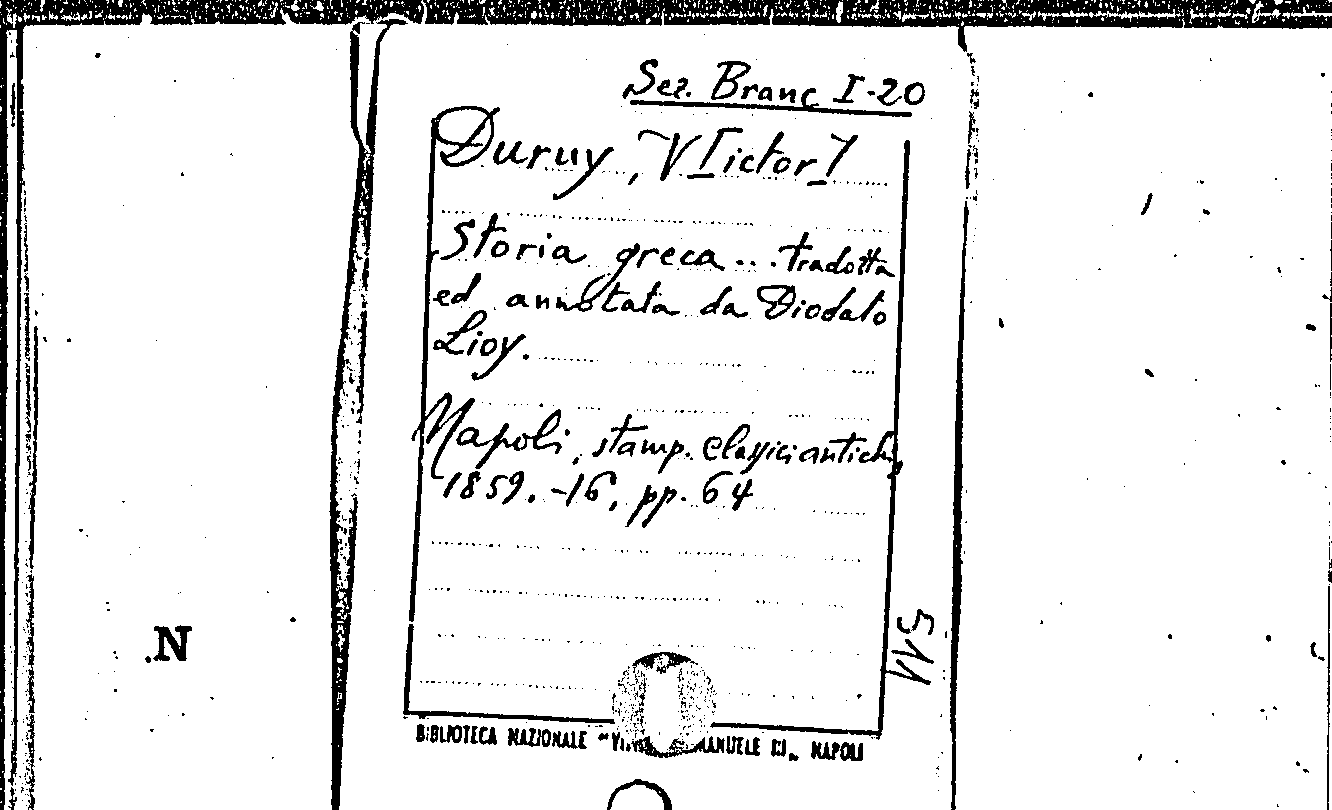 Sez. Branc I-20
Duruy, V[ictor]
Storia greca ... tradotta
ed annotata da Diodato
Lioy.
Napoli, stamp. Classici antichi,
1859. -16, pp. 64
511
N
BIBLIOTECA NAZIONALE "VITT EMANUELE III„ NAPOLI